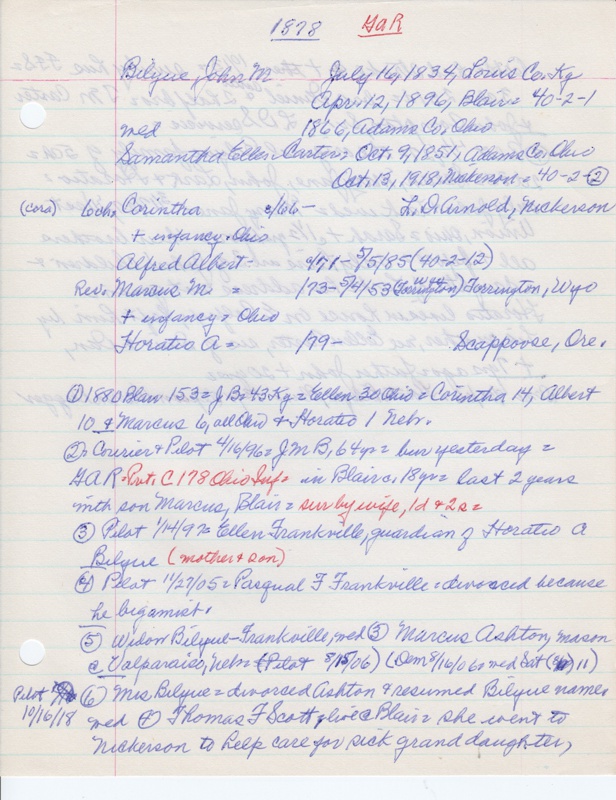 1878 GaR
Bilyue, John M - July 16, 1834, Louis Co. Ky
Apr. 12, 1896, Blair = 40-2-1
med 1866, Adams Co, Ohio
Samantha Ellen Carter = Oct. 9, 1851, Adams Co, Ohio
Oct. 13, 1918, Nickerson = 40-2-②
(Cora) Corintha c/66 - L. D. Arnold, Nickerson
+ infancy. Ohio
Alfred Albert - 5/5/85 (40-2-12)
Rev. Marcus M. = /73-5/4/53 (Torrington) Torrington, Wyo
+ infancy = Ohio
Horatio A = /79 - Scappoose, Ore.
① 1880 Blair 153 = J B = 43 Ky = Ellen 30 Ohio = Corintha 14, Albert
10 & Marcus 6, all Ohio & Horatio 1 Nebr.
② Courier & Pilot 4/16/96 = J M B, 64 yr = bur yesterday =
GAR = Pvt. C 178 Ohio Inf = in Blair c. 18 yr = last 2 years
with son Marcus, Blair = sur by wife, 1d & 2s =
③ Pilot 1/14/97 = Ellen Frankville, guardian of Horatio A
Bilyue (mother & son)
④ Pilot 11/27/05 = Pasqual F Frankville = divorced because
he bigamist.
⑤ Widow Bilyue-Frankville, med ③ Marcus Ashton, mason
c Valparaiso, Nebr = (Pilot 8/15/06) (Dem 8/16/06 = med Sat 11)
Pilot 10/16/18 ⑥ Mrs Bilyue = divorsed Ashton & resumed Bilyue name,
med ④ Thomas F Scott, live c Blair = she went to
Nickerson to help care for sick grand daughter,